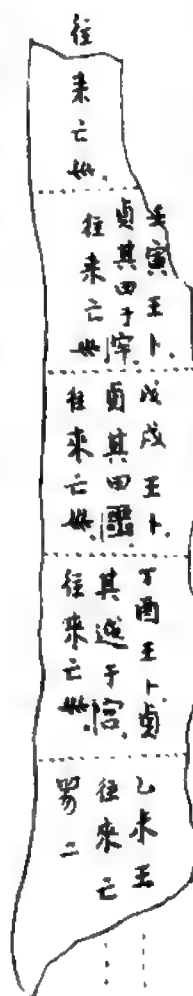 往来亡𡿧
壬寅王卜
貞其田于宰
往来亡𡿧
戊戌王卜
貞其田噩
往來亡𡿧
丁酉王卜貞
其于宮
往來亡𡿧
乙未王……
往來亡……
二